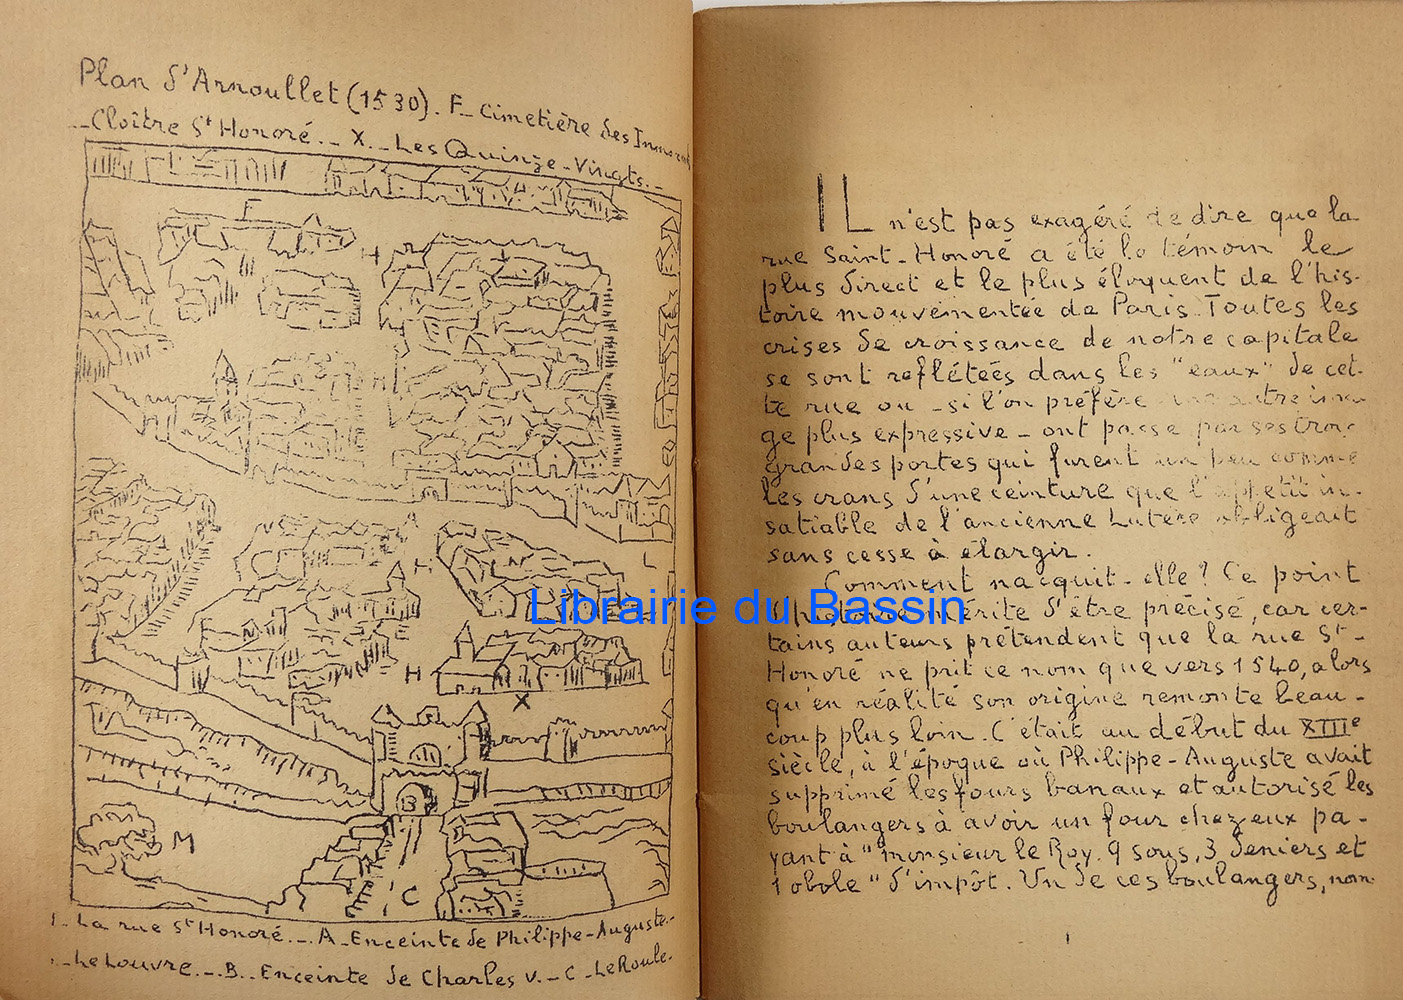 Plan d'Arnoullet (1530). F_ Cimetière des
_Cloître St Honoré._ X._ Les Quinze-Vingts._
F
H
H
A
H
L
H
X
B
M
C
_ La rue St Honoré._. A_Enceinte de Philippe-Auguste._
_Le Louvre._. B._ Enceinte de Charles V._ C_ Le Roule.
IL n'est pas exagéré de dire que la
rue Saint-Honoré a été le témoin le
plus direct et le plus éloquent de l'his-
toire mouvementée de Paris. Toutes les
crises de croissance de notre capitale
se sont reflétées dans les "eaux" de cet-
te rue ou _ si l'on préfère une autre ima-
ge plus expressive _ ont passé par ses trois
grandes portes qui furent un peu comme
les crans d'une ceinture que l'appétit in-
satiable de l'ancienne Lutèce obligeait
sans cesse à élargir.
Comment nacquit-elle? Ce point
d'histoire mérite d'être précisé, car cer-
tains auteurs prétendent que la rue St-
Honoré ne prit ce nom que vers 1540, alors
qu'en réalité son origine remonte beau-
coup plus loin. C'était au début du XIIIe
siècle, à l'époque où Philippe-Auguste avait
supprimé les fours banaux et autorisé les
boulangers à avoir un four chez eux pa-
yant à "monsieur le Roy. 9 sous, 3 deniers et
1 obole" d'impôt. Un de ces boulangers, nom-
1
Librairie du Bassin